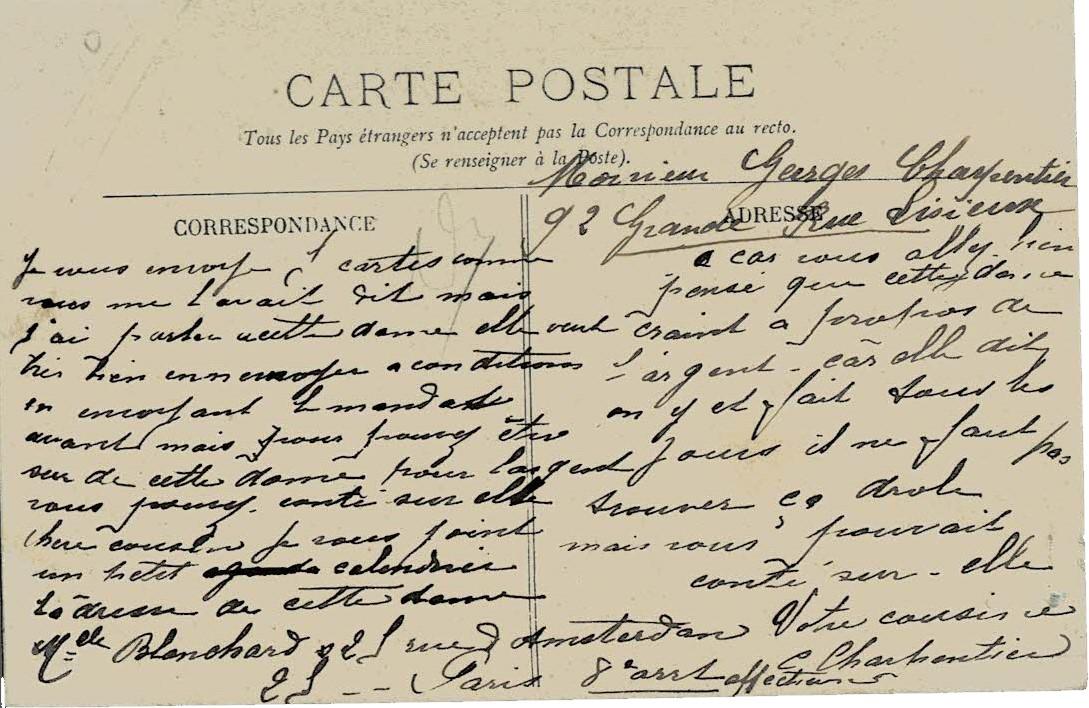 CARTE POSTALE
Tous les Pays étrangers n'acceptent pas la Correspondance au recto.
(Se renseigner à la Poste).
CORRESPONDANCE
Je vous envoye 5 cartes comme
vous me l'avait dit mais
j'ai parler a cette dame elle veut
très bien en nenvoyer a conditions
en envoyant le mandat
avant mais vous pouvez être
sur de cette dame pour largent
vous pouvez conté sur elle
chere cousin je vous joint
un petit calendrier
l'adresse de cette dame
Melle Blanchard 25 rue d'Amsterdam
25 -- Paris 8e arrt
ADRESSE
Monsieur Georges Charpentier
92 Grande Rue Lisieux
a cas vous allez bien
pensé que cette dame
craint a propos de
l'argent - car elle dit
on y et fait tous les
jours il ne faut pas
trouver ça drole
mais vous pouvait
conté sur - elle
Votre cousine
C Charpentier